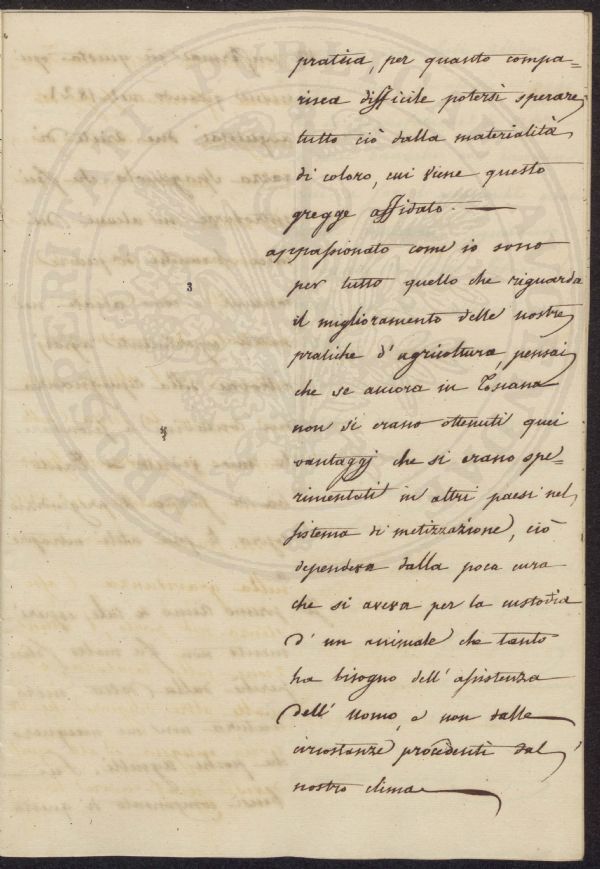 pratica, per quanto compa=
risca difficile potersi sperare
tutto ciò dalla materialità
di coloro, cui viene questo
gregge affidato. —
appassionato come io sono
per tutto quello che riguarda
3
il miglioramento delle nostre
pratiche d'agricoltura, pensai
che se ancora in Toscana
non si erano ottenuti quei
vantaggj che si erano spe=
rimentati in altri paesi nel
sistema di metizzazione, ciò
dependeva dalla poca cura
che si aveva per la custodia
d'un animale che tanto
ha bisogno dell'assistenza
dell'Uomo, e non dalle
circostanze procedenti dal
nostro clima —